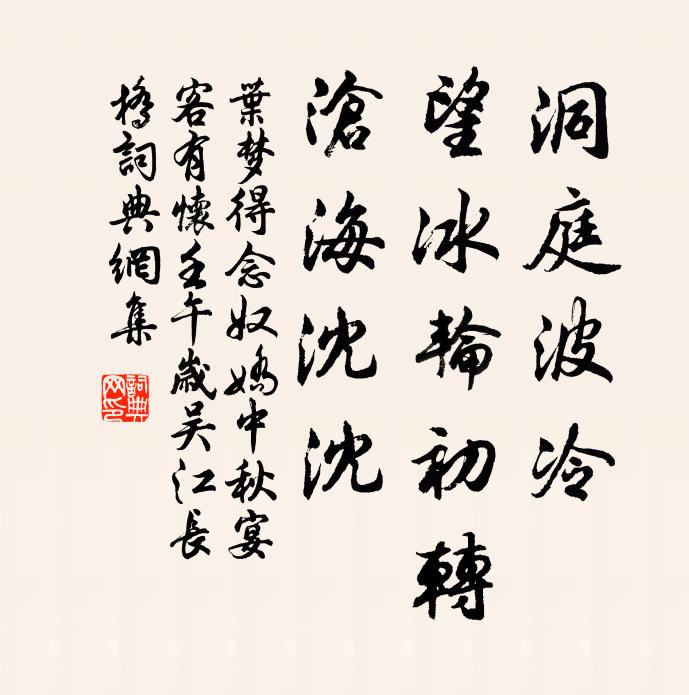 洞庭波冷
望冰輪初轉
滄海沈沈
葉梦得念奴嬌中秋宴
客有懷壬午歲吴江長
橋詞典網集
詞典网印